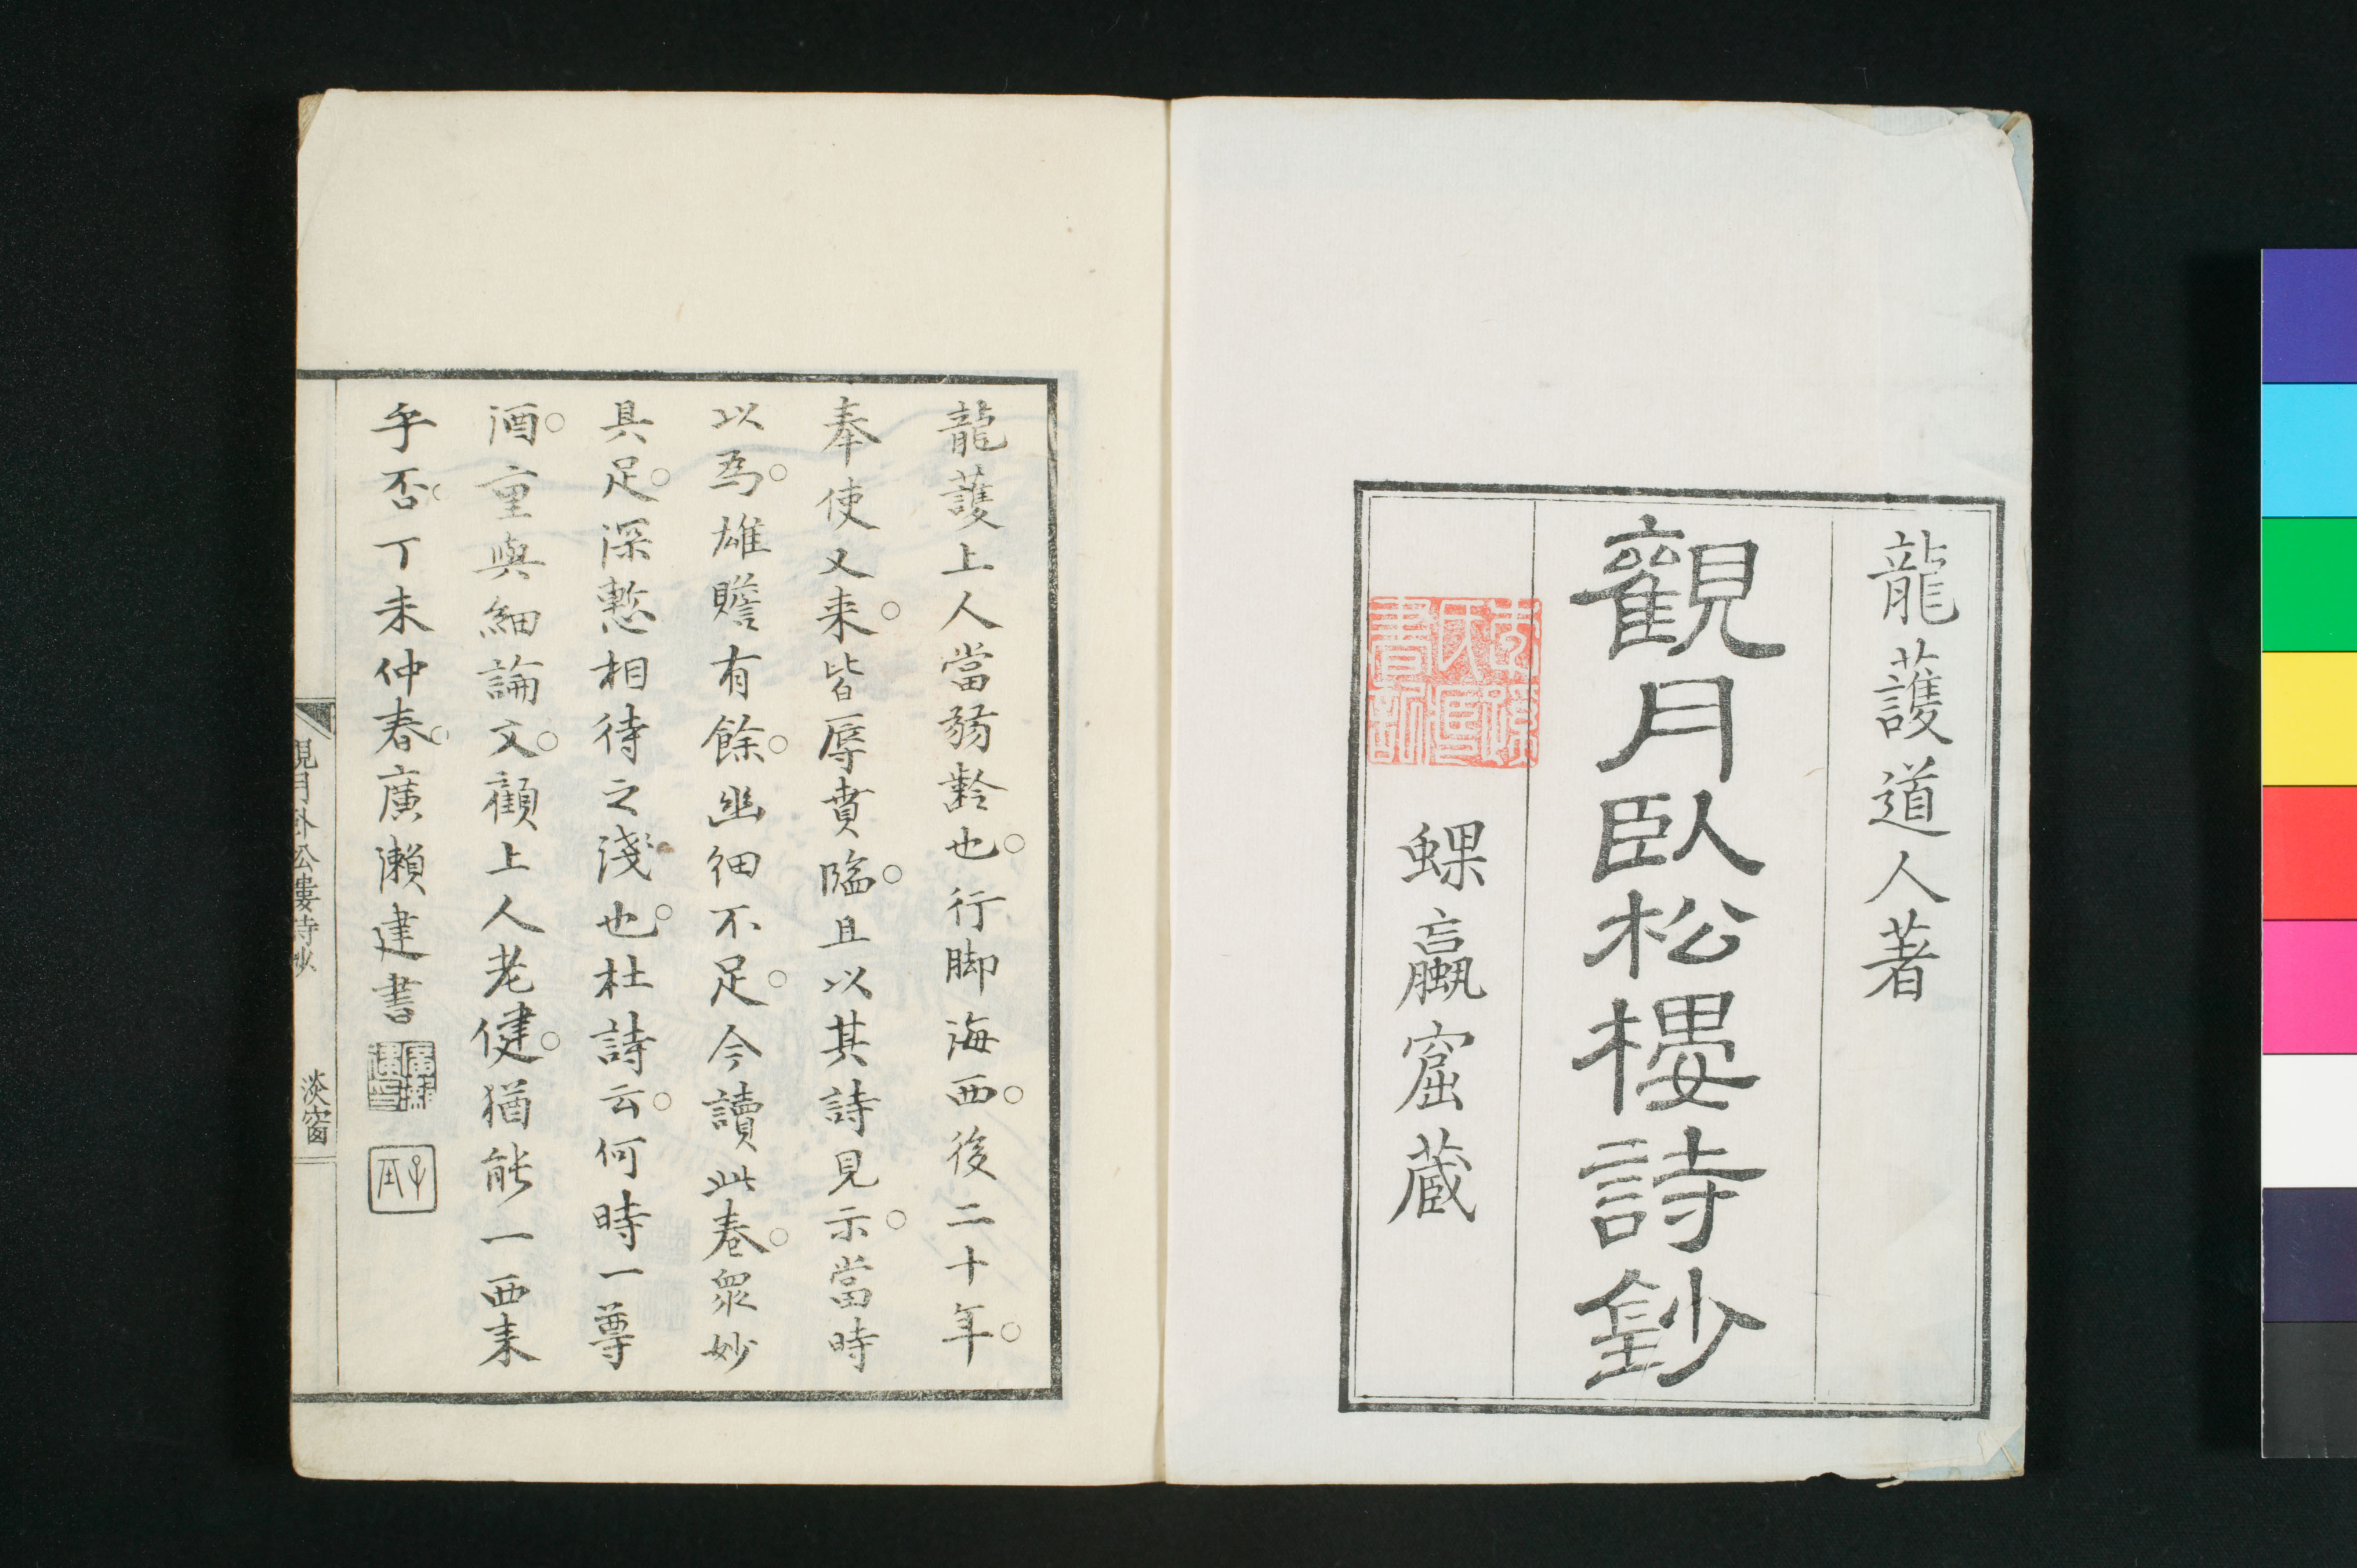 龍護道人著
觀月臥松樓詩鈔
蜾蠃窟蔵
龍護上人當弱齡也。行脚海西。後二十年。
奉使又来。皆辱賁臨。且以其詩見示。當時
以爲。雄贍有餘。幽細不足。今讀此卷。衆妙
具足。深慙相待之淺也。杜詩云。何時一尊
酒。重與細論文。顧上人老健。猶能一西来
乎否。丁未仲春。廣瀨建書
觀月臥松樓詩鈔
淡窗